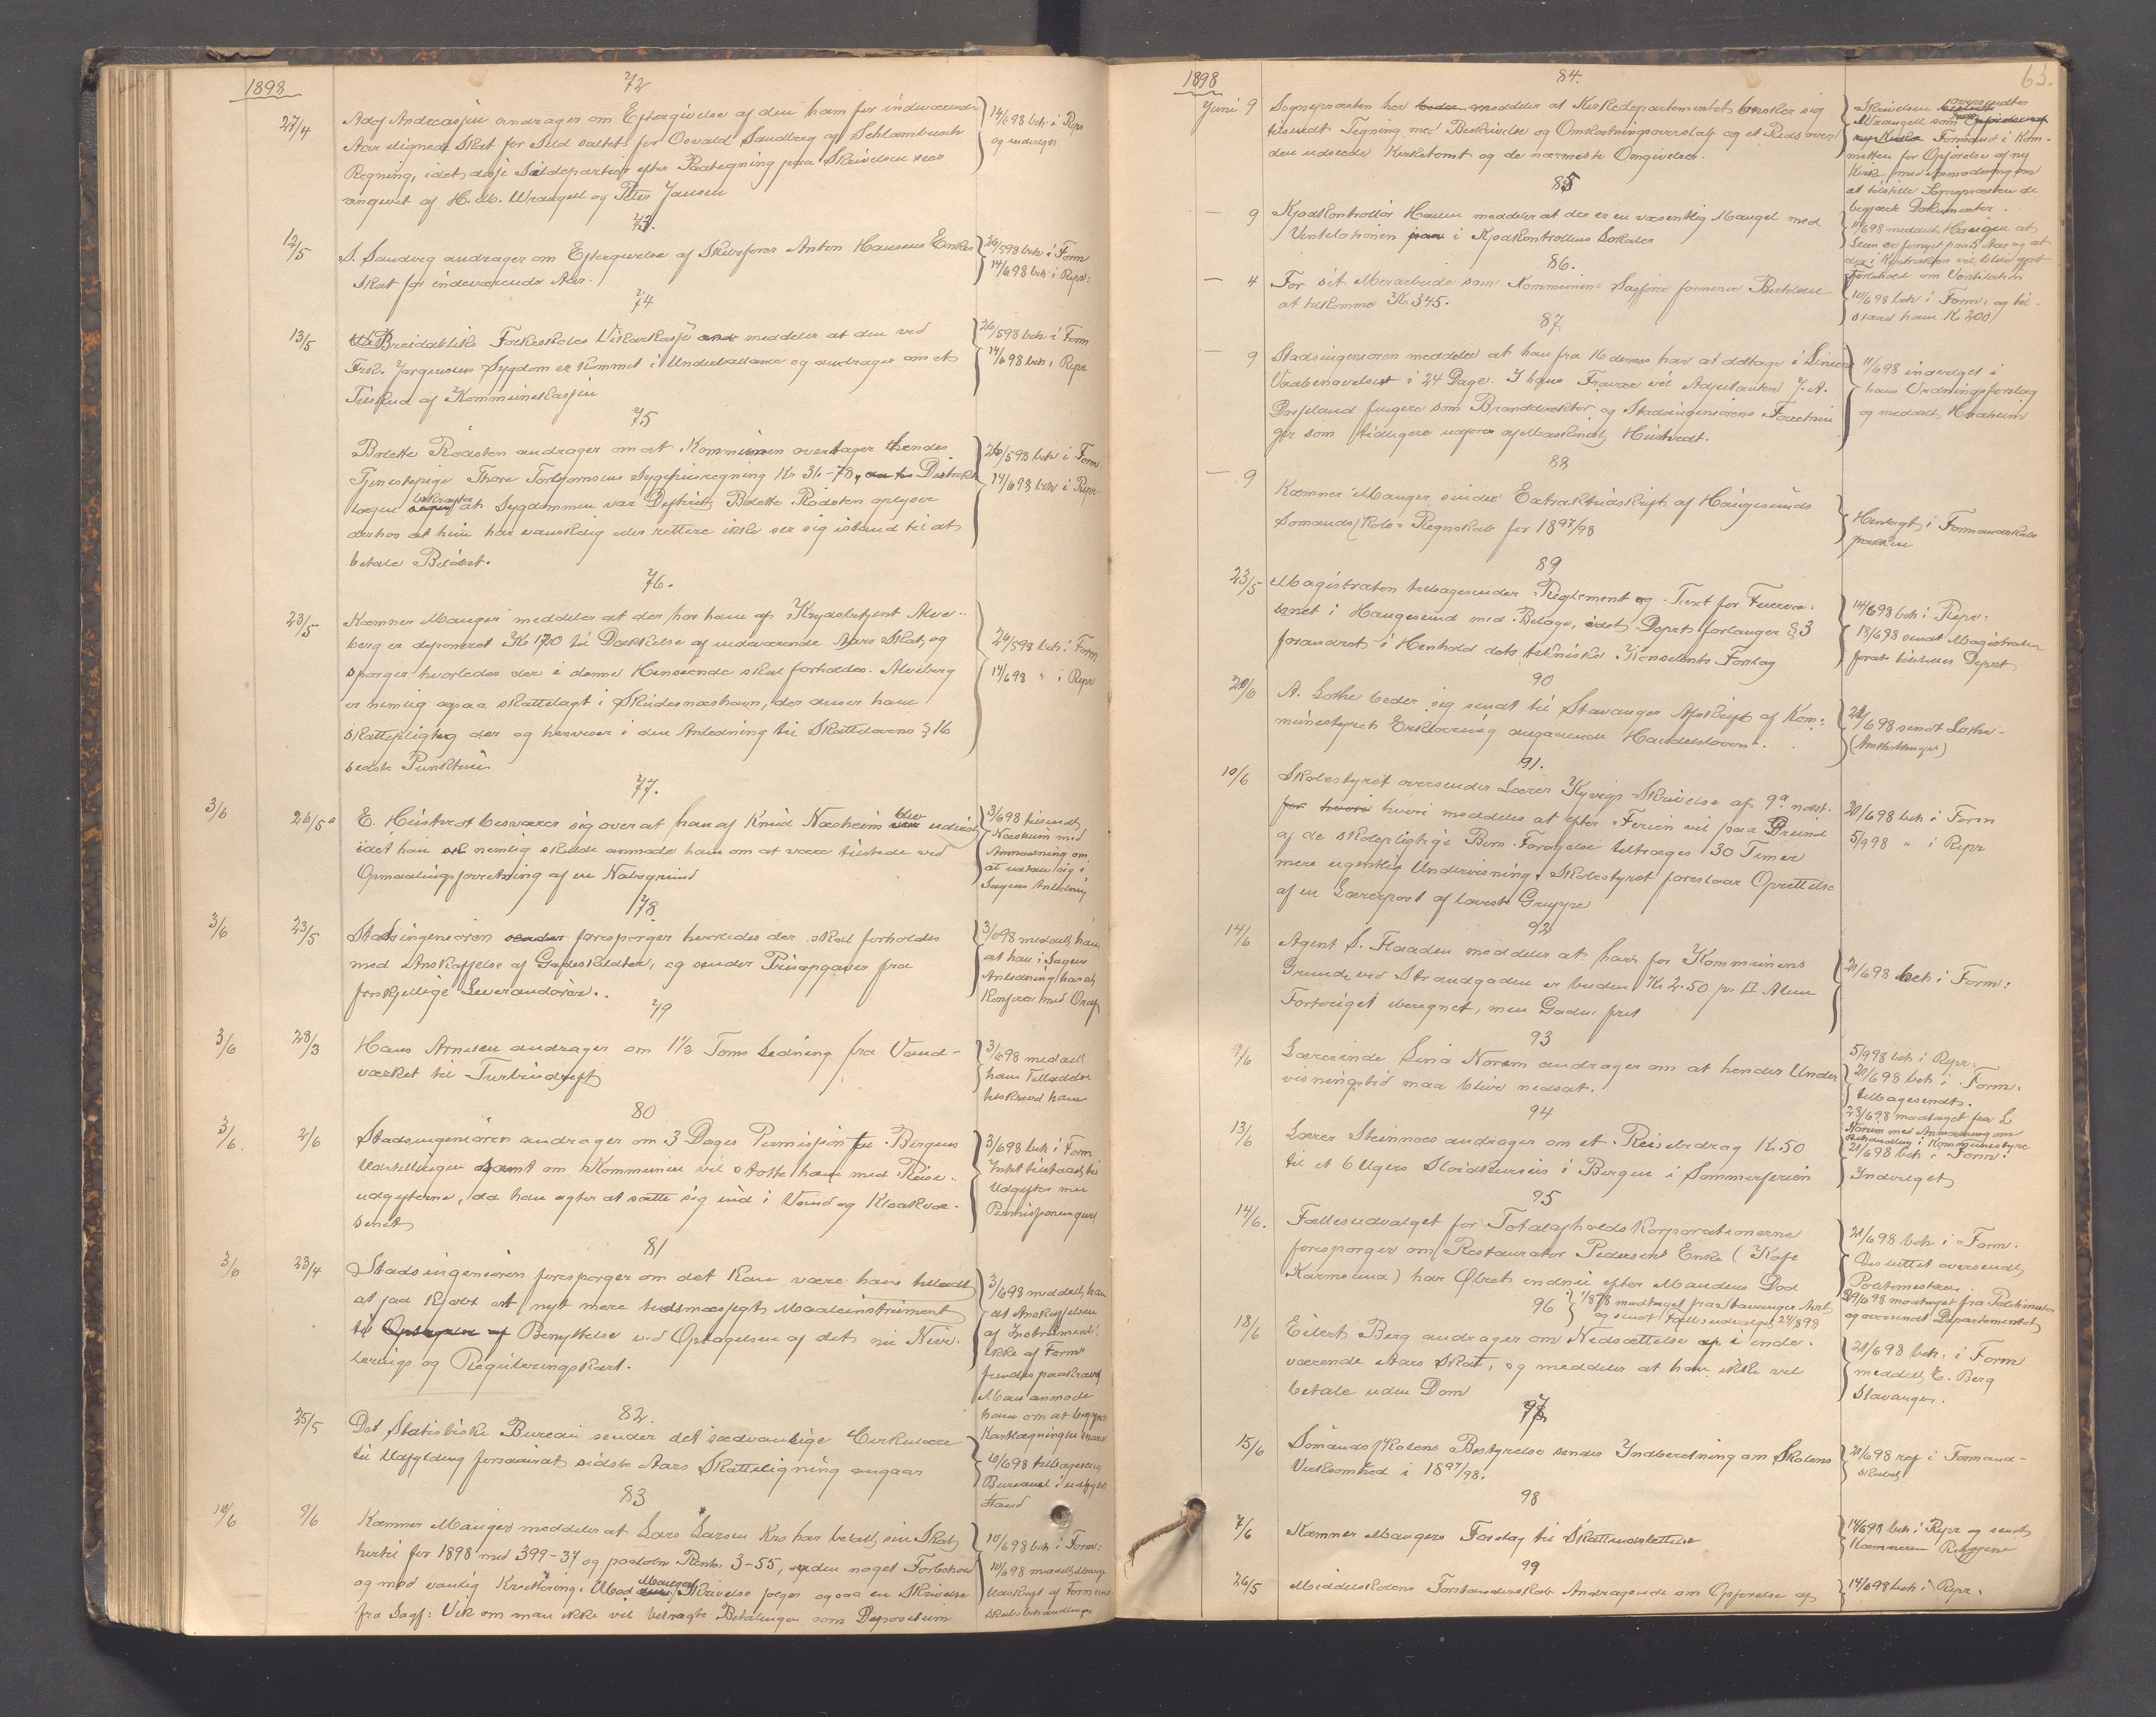 1898
72
27/4 Adof Andreassen andrager om Eftergivelse af den ham for indeværende
Aar lignede Skat for Sild saltet for Osvald Sandberg og Schlambusch
Regning, idet disse Sildepartier efter Paategning paa Skrivelsen sees
angivet af H. M. Wrangell og Peter Jansen
14/698 beh. i Repr
og indvilget
73.
12/5 S. Sandvig andrager om Eftergivelse af Skibsfører Anton Hansens Enkes
Skat for indeværende Aar.
26/598 beh i Form
14/698 beh i Repr:
74
13/5 Breidabliks Folkeskoles Vikarkasse meddeler at den ved
Frøk. Jørgensens Sygdom er kommet i Underballance og andrager om et
Tilskud af Kommunekassen
26/598 beh i Form
14/698 beh i Repr
75
Bolette Rødsten andrager om at Kommunen overtager hendes
Tjenestepige Thore Torbjørnsens Sygehusregning Kr 31-78, Distrikts
lægen bekræfter at Sygdommen var Difterit. Bolette Rødsten oplyser
derhos at hun har vanskelig eller rettere ikke ser sig istand til at
betale Beløbet.
26/598 beh i Form
14/698 beh i Repr
76.
23/5 Kæmner Mauger meddeler at der hos ham af Krydsbetjent Alve-
berg er deponeret Kr 170 til Dækkelse af indeværende Aars Skat, og
spørger hvorledes der i denne Henseende skal forholdes. Alveberg
er nemlig ogsaa skattelagt i Skudesneshavn, der anser ham
skattepligtig der og henviser i den Anledning til Skattelovens § 16
sidste Punktum
26/598 beh i Form
14/698 " i Repr
77.
3/6 26/5 E. Hustvedt besværer sig over at han af Knud Næsheim blev udvist
idet han nemlig skulde anmode ham om at være tilstede ved
Opmaalingsforretning af en Nabogrund
3/698 tilsendt
Næsheim med
Anmodning om
at udtale sig i
Sagens Anledning
78.
3/6 23/5 Stadsingeniøren forespørger hvorledes der skal forholdes
med Anskaffelse af Gadeskildter, og sender Prisopgaver fra
forskjellige Leverandører.
3/698 meddelt ham
at han i Sagens
Anledning har at
konferere med Ordf
79
3/6 28/3 Hans Arnesen andrager om 1 1/2 Toms Ledning fra Vand-
værket til Turbindrift
3/698 meddelt
ham Tilladelse
80
3/6. 2/6 Stadsingeniøren andrager om 3 Dages Permission til Bergens
Udstillingen samt om Kommunen vil støtte ham med Reise-
udgifterne, da han agter at sætte sig ind i Vand og Kloakvæ-
senet
3/698 beh i Form
Intet tilstaaet til
Udgifter men
Permissionen givet
81
3/6 23/4 Stadsingeniøren forespørger om det kan være ham tilladt
at faa kjøbt et nyt mere tidsmæssigt Maaleinstrument
til Benyttelse ved Optagelsen af det nu Nivel-
lerings og Reguleringskart.
3/698 meddelt ham
at Anskaffelsen
af Instrumentet
ikke af Form
findes paakrævet
Man anmode
ham om at begynde
Kartlægningen snarest
82.
25/5 Det Statistiske Bureau sender det sædvanlige Cirkulære
til Udfyldning forsaavidt sidste Aars Skatteligning angaar
10/698 tilbagesendt
Bureauet i udfyldt
Stand
83
10/6 9/6 Kæmner Mauger meddeler at Lars Larsen Kro har betalt sin Skat
hertil for 1898 med 399-37 og paaløbne Renter 3-55, uden noget Forbehold
og mod vanlig Kvittering. Med Maugers Skrivelse følger ogsaa en Skrivelse
fra Sagf: Vik om man ikke vil betragte Betalingen som Depositum
10/698 beh i Form:
10/698 meddelt Mauger
Udskrift af Formand-
skabsbehandlingen
63.
1898
84.
Juni 9 Sognepræsten her meddeler at Kirkedepartementet ønsker sig
tilsendt Tegning med Beskrivelse og Omkostningsoverslag og et Rids over
den udseede Kirketomt og de nærmeste Omgivelser.
Skrivelsen oversendtes
Wrangell som
Formand i Kom-
mitteen for Opførelse af ny
Kirke med Anmodning om
at tilstille Sognepræsten de
begjærte Dokumenter.
85
— 9 Kjødkontrollør Hansen meddeler at der er en væsentlig Mangel med
Ventilationen i Kjødkontrollens Lokaler
11/698 meddelt Haugen at
Leien er fornyet paa 5 Aar og at
der i Kontrakten vil blive gjort
Forbehold om Ventilation
86.
— 4 For sit Merarbeide som Kommunens Sagfører formener Bertelsen
at tilkomme Kr 345.
10/698 beh i Form: og til-
staaet ham Kr 200
87
— 9 Stadsingeniøren meddeler at han fra 16 dennes har at deltage i Liniens
Vaabenøvelser i 24 Dage. I hans Fravær vil Adjutanten J. A.
Drejland fungere som Branddirektør og Stadsingeniørens Forretnin
ger som tidligere udføres af Maskinist Hustvedt.
11/698 indvilget i
hans Ordningsforslag
og meddelt Hodnum
88
— 9 Kæmner Mauger sender Extraktudskrift af Haugesunds
Sømandsskole=Regnskab for 1897/98
Henlagt i Formandskabs
pakken
89
23/5 Magistraten tilbagesender Reglement og Taxt for Feievæ-
senet i Haugesund med Bilage, idet Deprt forlanger § 3
forandret i Henhold dets tekniske Konsulents Forslag
14/698 beh i Repr:
18/698 sendt Magistraten
forat tilstilles Deprt
90
20/6 A. Lothe beder sig sendt til Stavanger Afskrift af Kom-
munestyrets Erklæring angaaende Handelsloven.
22/698 sendt Lothe
(Amtstinget)
91.
10/6 Skolestyret oversender Lærer Kyvigs Skrivelse af 9de næst.
hvori meddeles at efter Ferien vil paa Grund
af de skolepligtige Børns Forøgelse tiltrænges 30 Timer
mere ugentlig Undervisning. Skolestyret foreslaar Oprettelse
af en Lærerpost af laveste Gruppe
21/698 beh i Form
5/998 " i Repr
92
14/6 Agent S. Haaden meddeler at ham for Kommunens
Grunde ved Strandgaden er buden Kr 2.50 pr. □ Alen
Fortouget iberegnet, men Gaden frit
21/698 beh i Form:
93
9/6 Lærerinde Lina Norem andrager om at hendes Under
visningstid maa blive nedsat.
5/998 beh i Repr.
21/698 beh i Form.
tilbagesendt.
28/698 modtaget fra L
Norem med Anmodning om
Behandling i Kommunestyre
94
13/6 Lærer Steinnæs andrager om et Reisebidrag Kr. 50
til et 6 Ugers Sløidkursus i Bergen i Sommerferien
21/698 beh i Form:
Indvilget
95
14/6. Fællesudvalget for Totalafholdskorporationerne
forespørger om Restauratør Pedersens Enke (Kafe
Karmsund) har Ølret endnu efter Mandens Død
21/698 beh i Form.
Besluttet oversendt
Politimesteren
29/698 modtaget fra Politimester
og oversendt Departementet
1/898 modtaget fra Stavanger Amt
og sendt Fællesudvalget 24/898
96
18/6 Eilert Berg andrager om Nedsættelse i inde-
værende Aars Skat, og meddeler at han ikke vil
betale uden Dom
21/698 beh. i Form
meddelt E. Berg
Stavanger.
97
15/6 Sømandsskolens Bestyrelse sender Indberetning om Skolens
Virksomhed i 1897/98.
21/698 ref i Formand-
skabet
98
7/6 Kæmner Maugers Forslag til Skatteudslettelse
14/698 beh i Repr og sendt
Kæmneren
99
26/5 Middelskolens Forstanderskab Andragende om Opførelse af
14/698 beh i Repr.